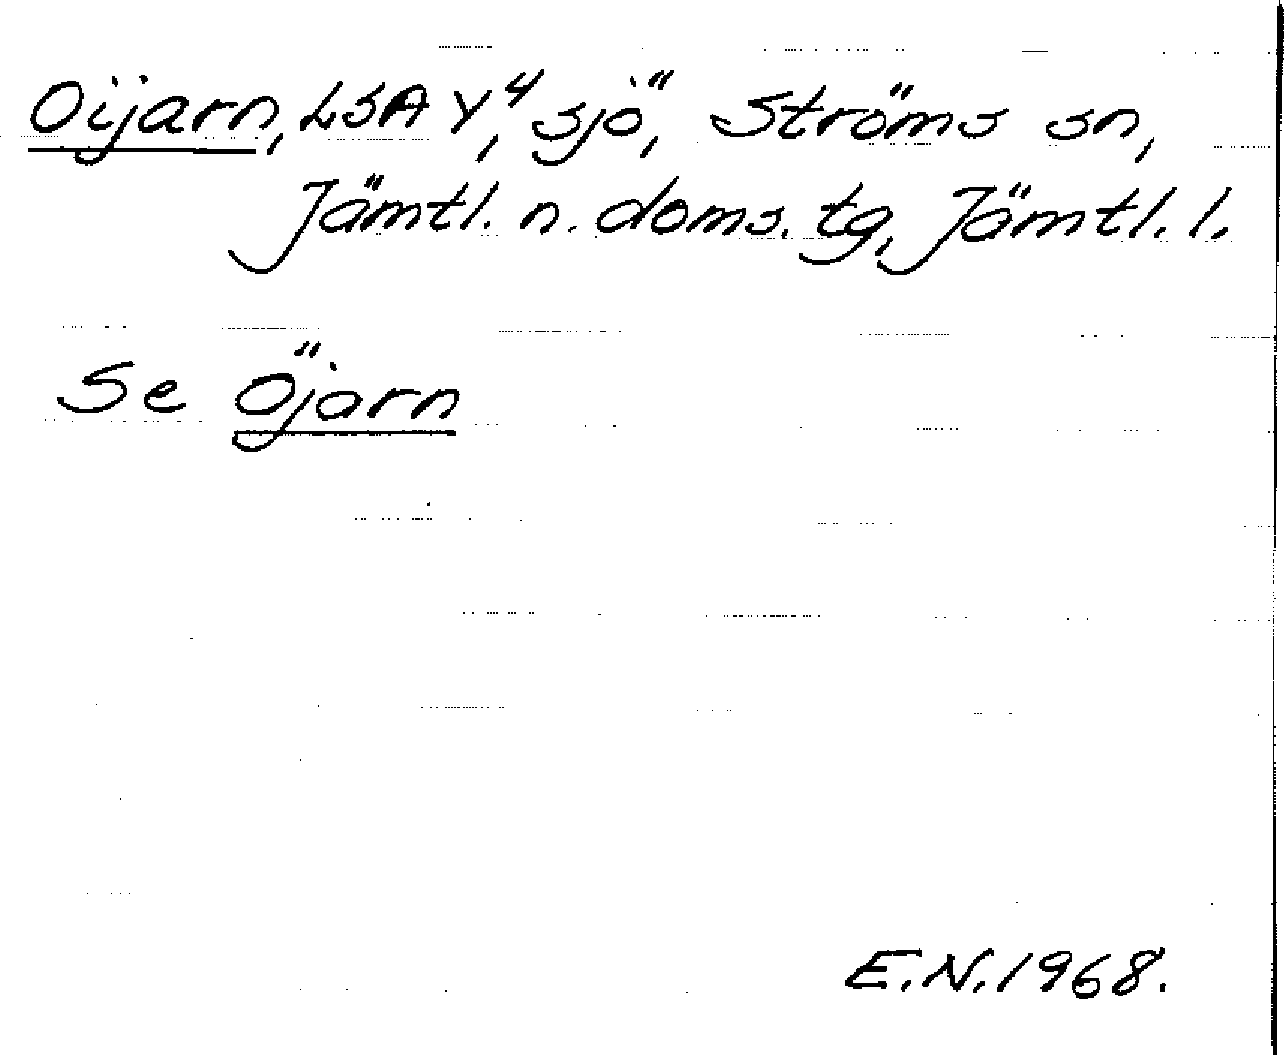 Oijarn, LSA Y⁴, sjö, Ströms sn,
Jämtl. n. doms. tg, Jämtl. l.
Se Öjarn
E.N. 1968.